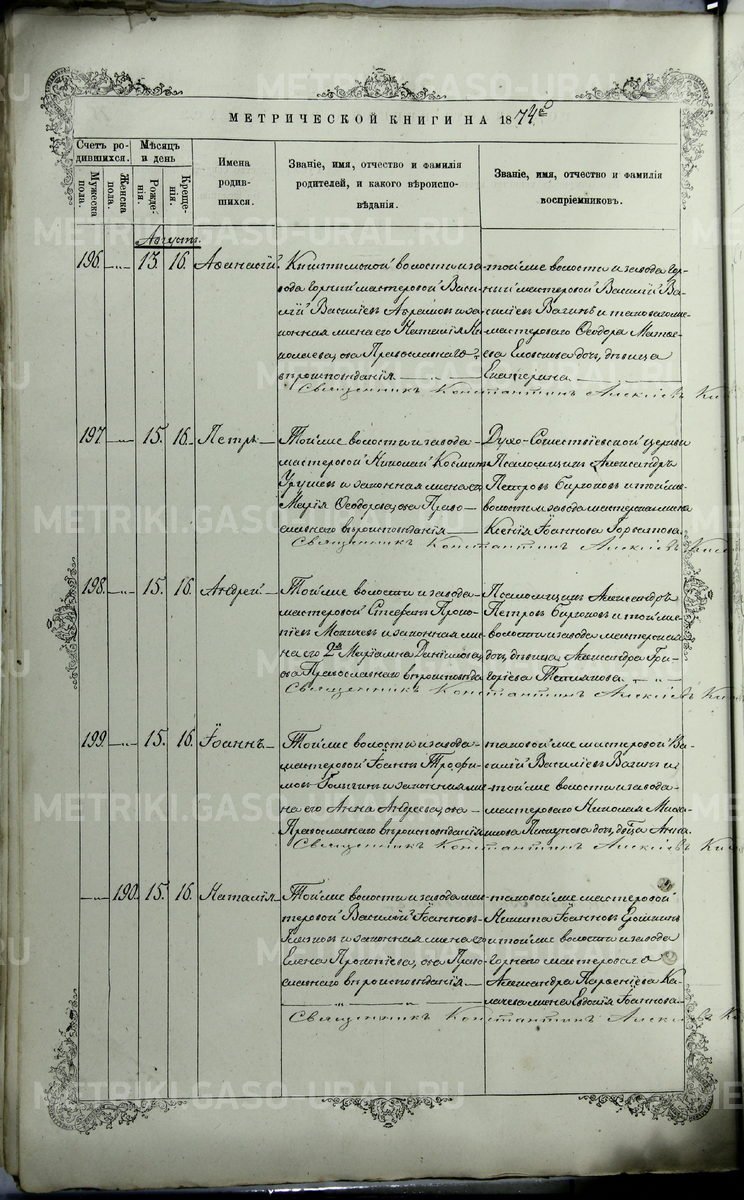 МЕТРИЧЕСКОЙ КНИГИ НА 1874й
Счетъ ро-
дившихся.
Мѣсяцъ
и день
Имена
родив-
шихся.
Званіе, имя, отчество и фамилія
родителей, и какого вѣроиспо-
вѣданія.
Званіе, имя, отчество и фамилія
воспріемниковъ.
Мужеска
пола.
Женска
пола.
Рожде-
нія.
Креще-
нія.
Августъ.
196. 13. 16. Аѳанасій.
Кыштымской волости и за-
вода горный мастеровой Васи-
лій Васильевъ и за-
конная жена его Наталія Ни-
колаевна, оба Православнаго
вѣроисповѣданія
той же волости и завода гор-
ный мастеровой Василій Ва-
сильевъ Вагинъ и таковаго же
мастероваго Ѳеодора Матве-
ева дочь, дѣвица
Екатерина.
Священникъ Константинъ Алексіевъ
197 15. 16. Петръ
Той же волости и завода
мастеровой Николай Косминъ
и законная жена его
Марія Ѳеодоровна, оба Право-
славнаго вѣроисповѣданія
Духо-Сошествіевской церкви
Псаломщикъ Александръ
Петровъ Бирюковъ и той же
волости и завода мастерская жена
Ксенія Іоаннова Горбатова.
Священникъ Константинъ Алексіевъ
198. 15. 16. Андрей
Той же волости и завода
мастеровой Стефанъ Проко-
піевъ и законная же-
на его 2я Маріамна Даніилова,
оба Православнаго вѣроисповѣда
Псаломщикъ Александръ
Петровъ Бирюковъ и той же
волости и завода мастерская
дочь, дѣвица Александра Гри-
горіева
Священникъ Константинъ Алексіевъ
199. 15. 16. Іоаннъ
Той же волости и завода
мастеровой Іоаннъ Трофи-
мовъ и законная же-
на его Анна Андреева, оба
Православнаго вѣроисповѣданія
таковой же мастеровой Ва-
силій Васильевъ Вагинъ и
той же волости и завода
мастероваго Николая Миха-
илова дочь, дѣвица Анна.
Священникъ Константинъ Алексіевъ
190. 15. 16. Наталія
Той же волости и завода мас-
теровой Василій Іоанновъ
и законная жена его
Елена Прокопіева, оба Право-
славнаго вѣроисповѣданія
таковой же мастеровой
Никита Іоанновъ Ерошкинъ
и той же волости и завода
горнаго мастероваго
Александра Парѳеніева Ка-
лачева жена Евдокія Іоаннова.
Священникъ Константинъ Алексіевъ
METRIKI.GASO-URAL.RU